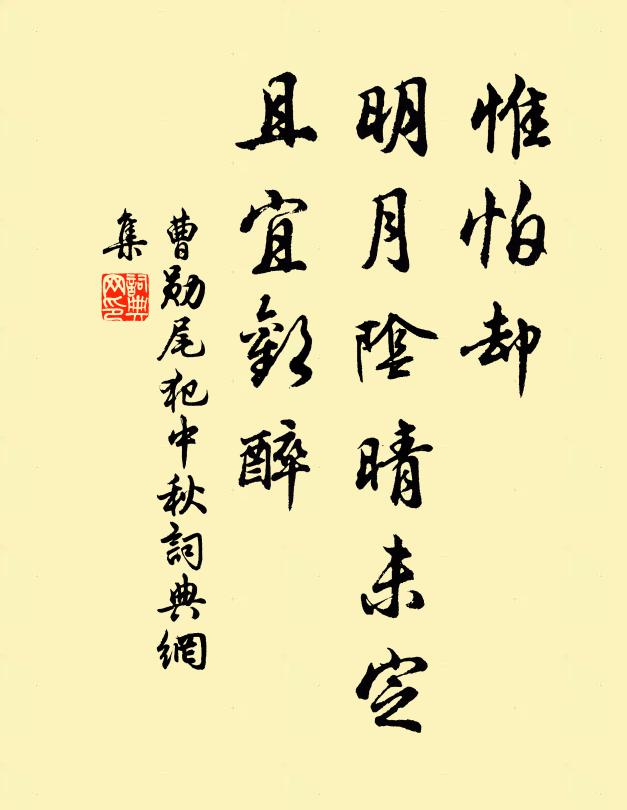 惟怕却
明月陰晴未定
且宜歡醉
曹勛尾犯中秋詞典網
集
詞典
网印